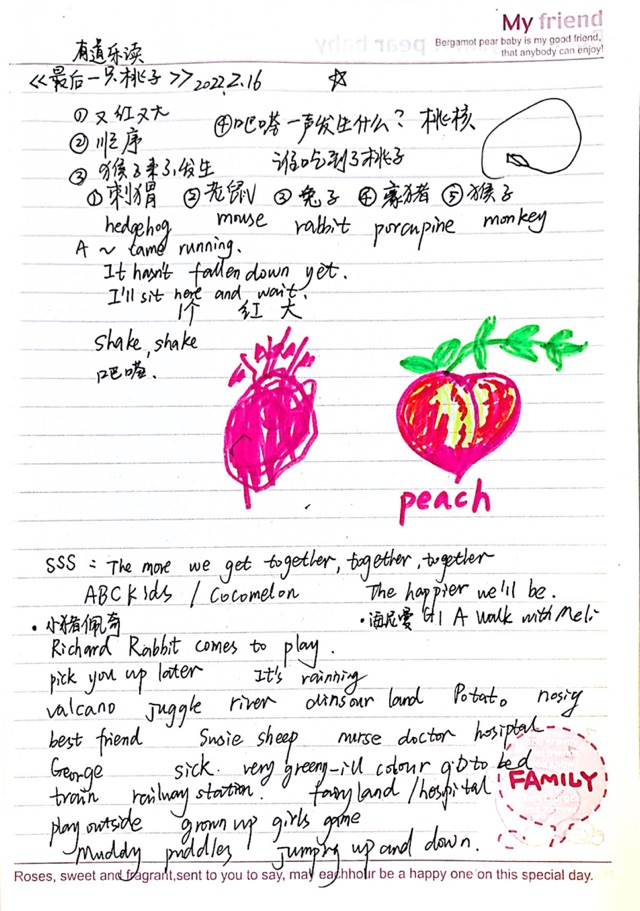 My friend
Bergamot pear baby is my good friend,
that anybody can enjoy!
有道乐读
<<最后一只桃子>> 2022.2.16
① 又红又大
④吧嗒一声发生什么? 桃核
② 顺序
谁吃到了桃子
③ 猴子来了,发生
①刺猬 ②老鼠 ③兔子 ④豪猪 ⑤猴子
hedgehog mouse rabbit porcupine monkey
A ~ came running.
It hasn't fallen down yet.
I'll sit here and wait.
1个 红 大
Shake, shake
吧嗒.
peach
SSS: The more we get together, together, together
ABC kids / Cocomelon The happier we'll be.
·小猪佩奇 ·海尼曼 G1 A walk with Meli
Richard Rabbit comes to play.
pick you up later It's rainning
valcano juggle river dinsour land Potato nosig
best friend Susie sheep nurse doctor hosiptal
George sick. very greeny-ill colour go to bed
train railway station. fairyland /hospital
FAMILY
play outside grown up girls game
Muddy puddles jumping up and down.
Roses, sweet and fragrant,sent to you to say, may eachhour be a happy one on this special day.